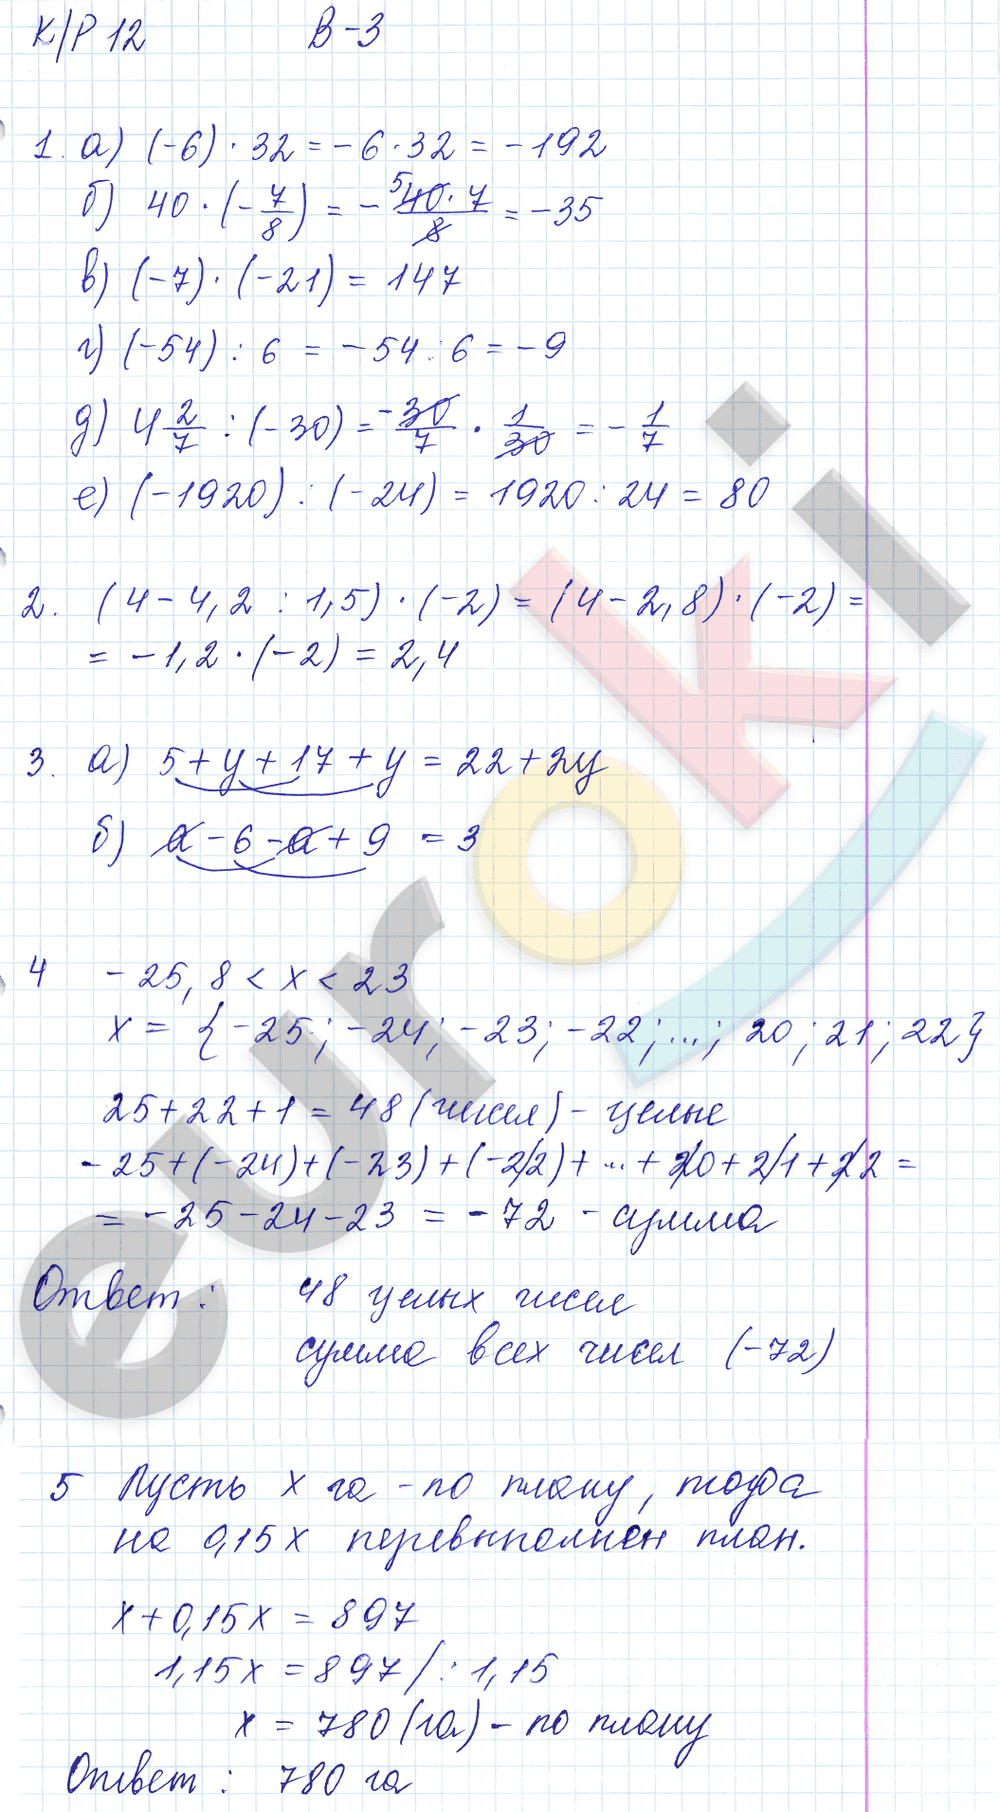 К/Р 12 В-3
1. а) (-6) · 32 = -6 · 32 = -192
б) 40 · (-7/8) = - 5 40 · 7/8 = -35
в) (-7) · (-21) = 147
г) (-54) : 6 = -54 : 6 = -9
д) 4 2/7 : (-30) = -30/7 · 1/30 = -1/7
е) (-1920) : (-24) = 1920 : 24 = 80
2. (4 - 4,2 : 1,5) · (-2) = (4 - 2,8) · (-2) =
= -1,2 · (-2) = 2,4
3. а) 5 + y + 17 + y = 22 + 2y
б) a - 6 - a + 9 = 3
4 -25,8 < x < 23
x = {-25; -24; -23; -22; ...; 20; 21; 22}
25 + 22 + 1 = 48 (чисел) - целые
-25 + (-24) + (-23) + (-22) + ... + 20 + 21 + 22 =
= -25 - 24 - 23 = -72 - сумма
Ответ: 48 целых чисел
сумма всех чисел (-72)
5 Пусть x га - по плану, тогда
на 0,15x перевыполнен план.
x + 0,15x = 897
1,15x = 897 /: 1,15
x = 780 (га) - по плану
Ответ: 780 га
euroki